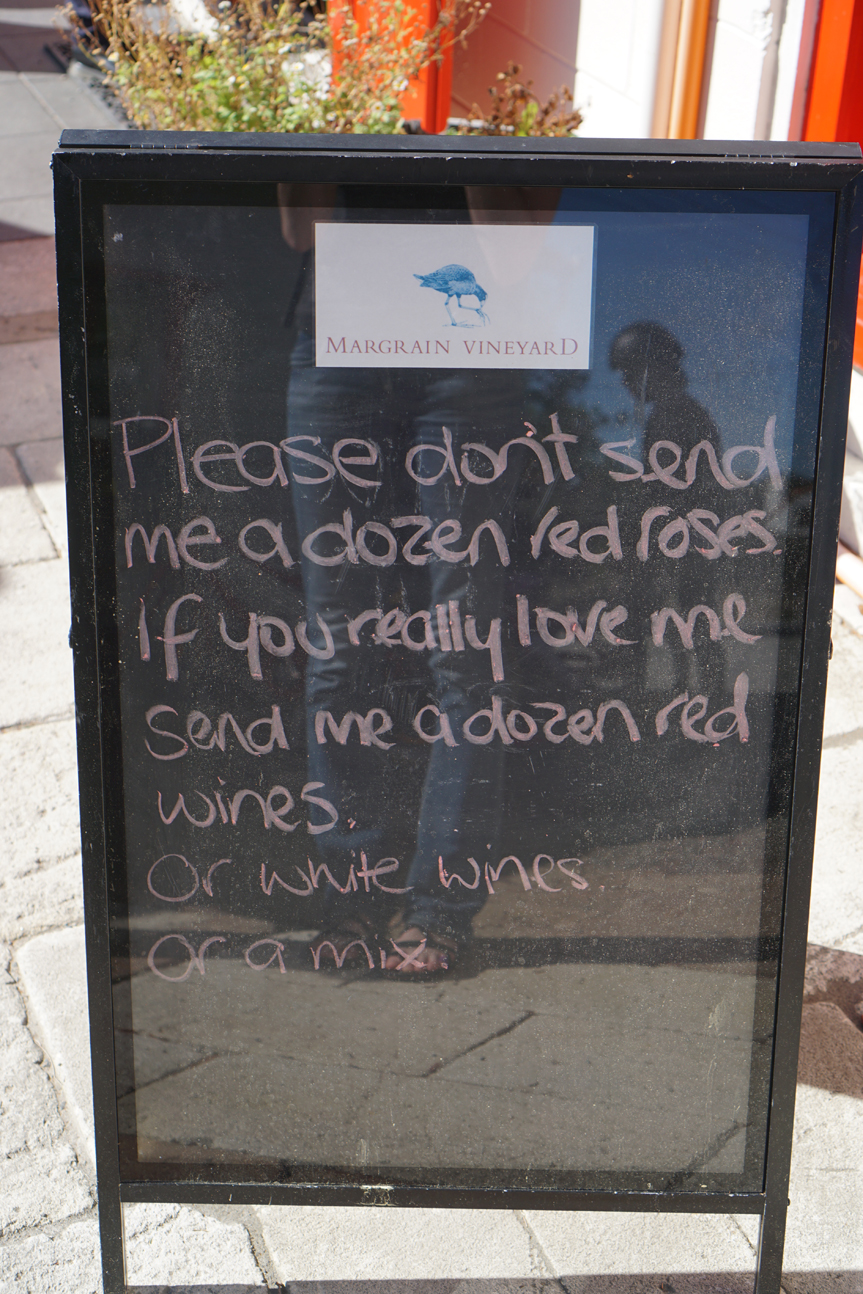 MARGRAIN VINEYARD
Please don't send
me a dozen red roses.
If you really love me
send me a dozen red
wines.
Or white wines.
Or a mix.